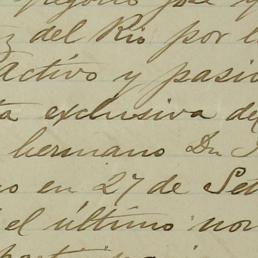 José
del Rio por l
Activo y pasi
ta exclusiva de
hermano Dn
o en 27 de Set
el último nom